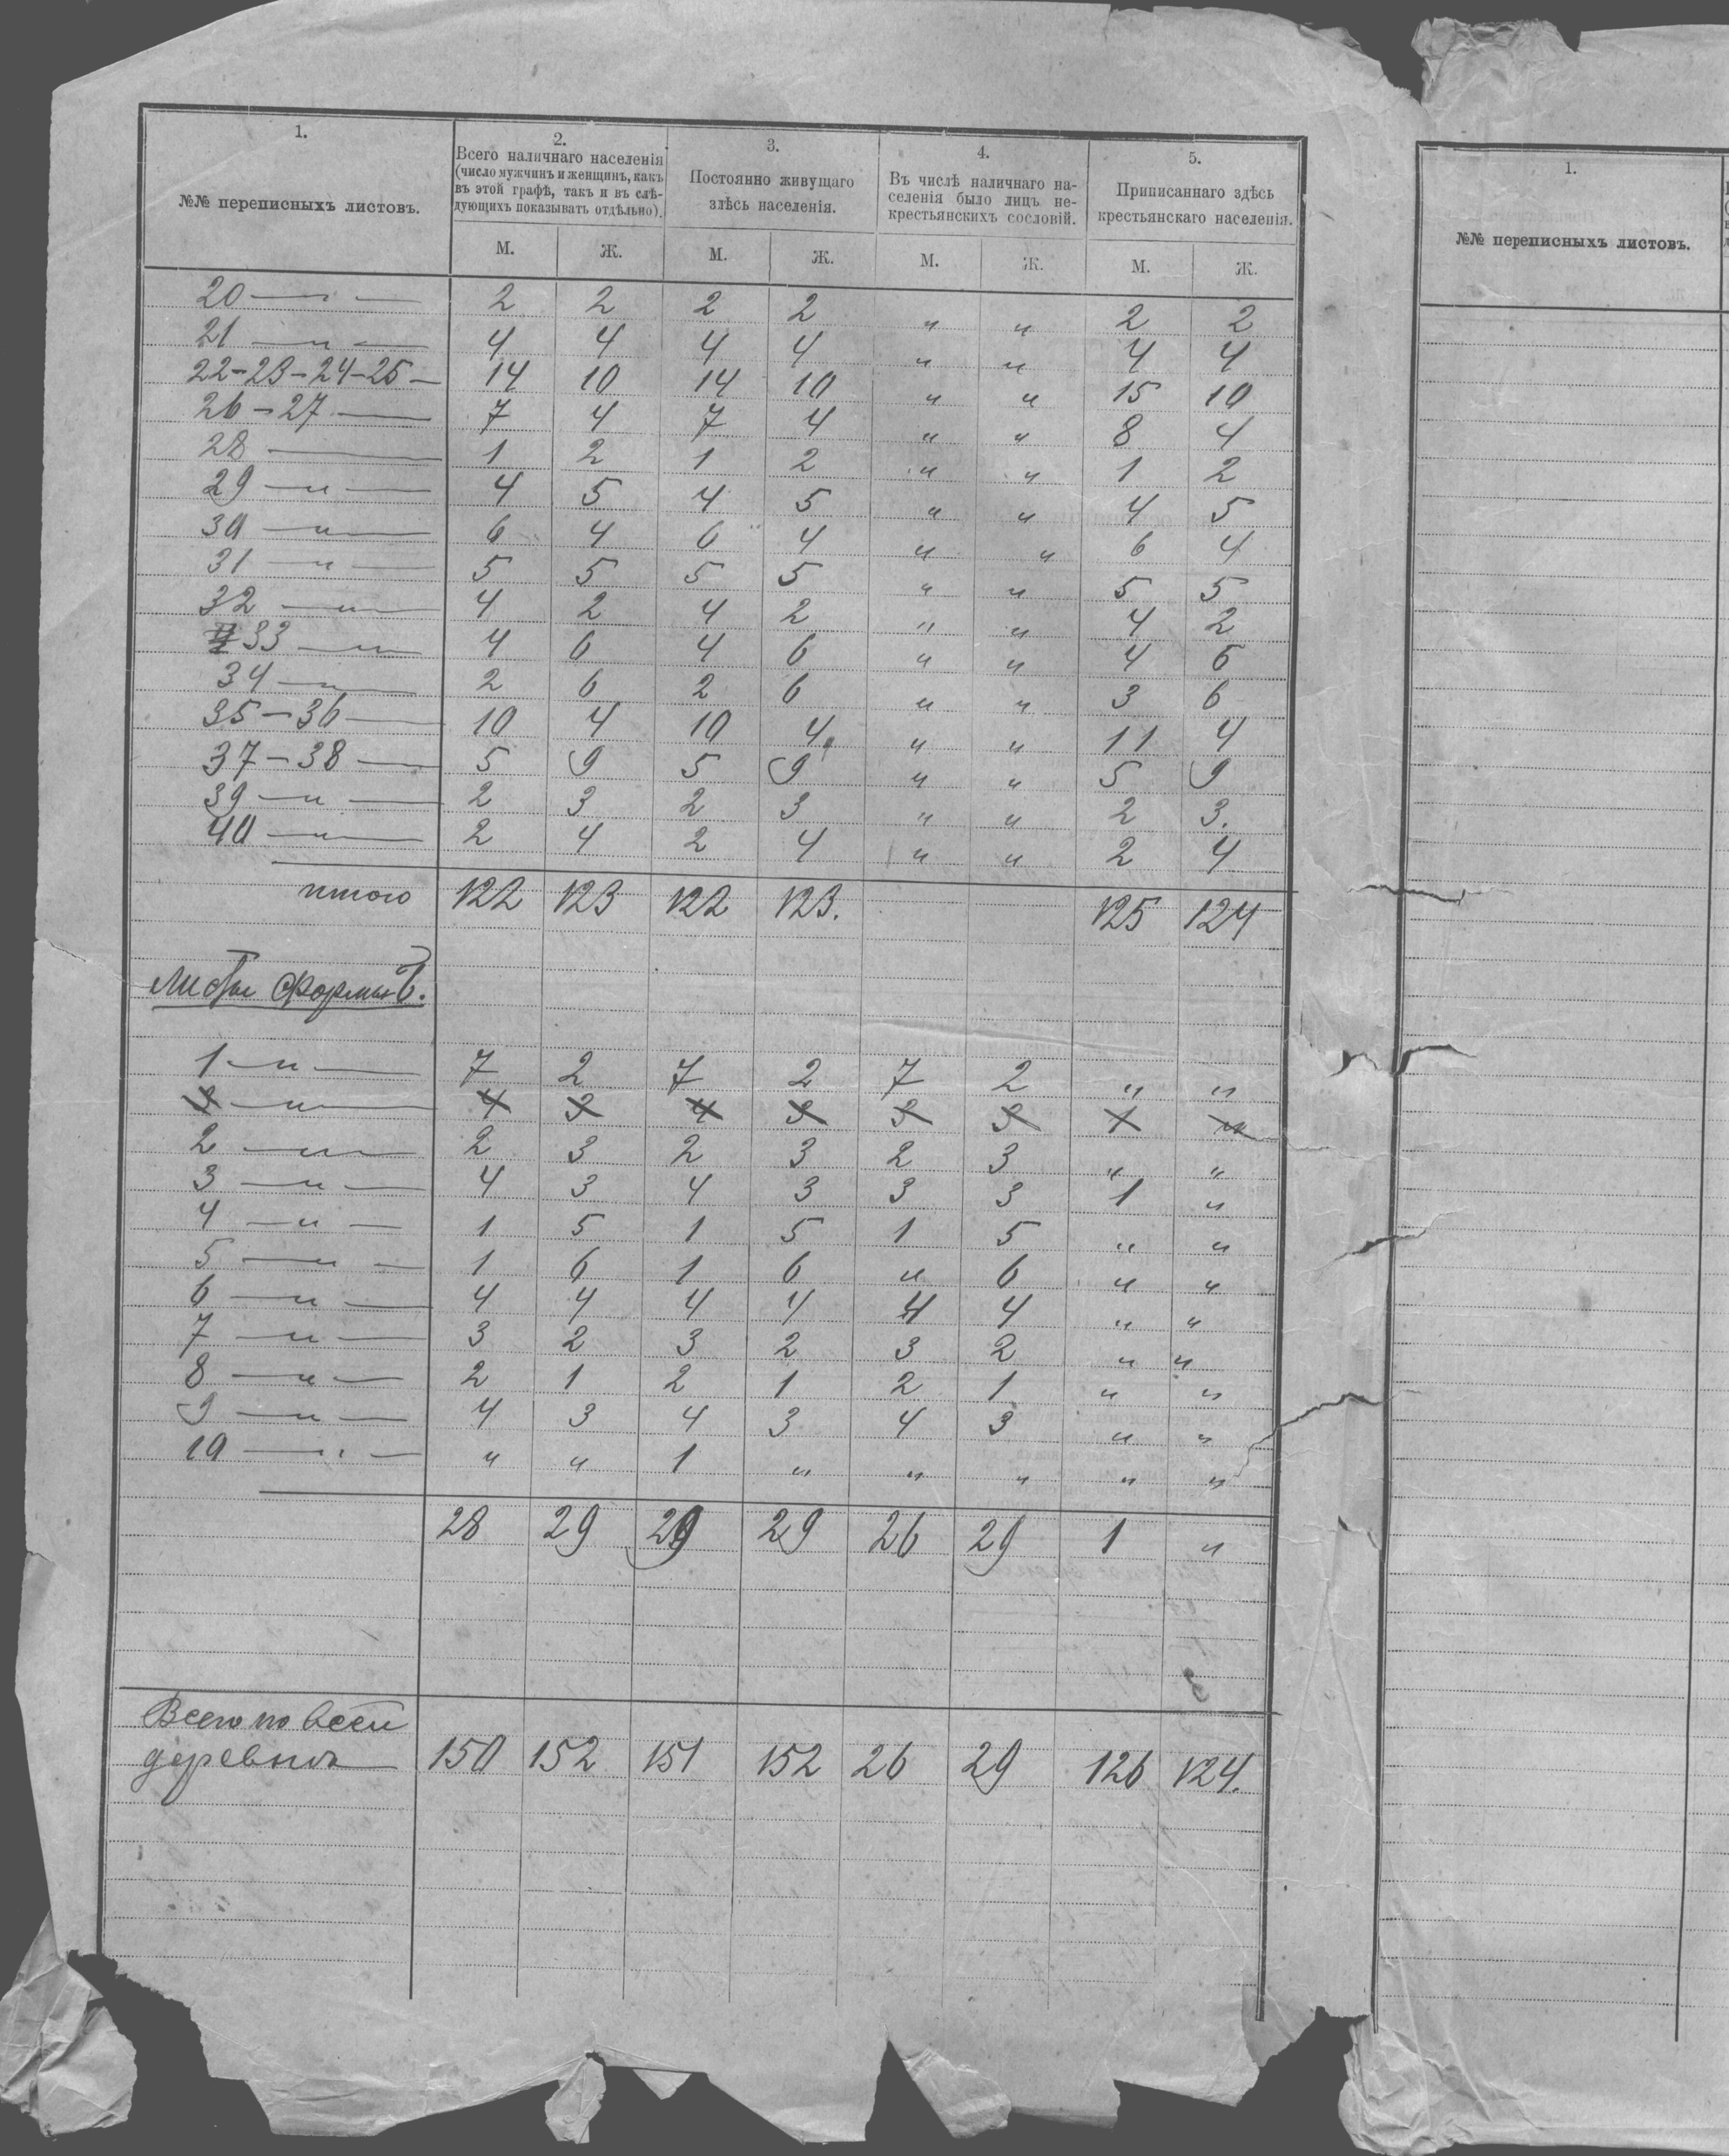 1. 2. 3. 4. 5.
№№ переписныхъ листовъ. Всего наличнаго населенія (число мужчинъ и женщинъ, какъ въ этой графѣ, такъ и въ слѣдующихъ показывать отдѣльно). Постоянно живущаго здѣсь населенія. Въ числѣ наличнаго населенія было лицъ некрестьянскихъ сословій. Приписаннаго здѣсь крестьянскаго населенія.
М. Ж. М. Ж. М. Ж. М. Ж.
20 — " — 2 2 2 2 " " 2 2
21 — " — 4 4 4 4 " " 4 4
22-23-24-25 — 14 10 14 10 " " 15 10
26-27 — 7 4 7 4 " " 8 4
28 — 1 2 1 2 " " 1 2
29 — " — 4 5 4 5 " " 4 5
30 — " — 6 4 6 4 " " 6 4
31 — " — 5 5 5 5 " " 5 5
32 — " — 4 2 4 2 " " 4 2
33 — " — 4 6 4 6 " " 4 6
34 — " — 2 6 2 6 " " 3 6
35-36 — 10 4 10 4 " " 11 4
37-38 — 5 9 5 9 " " 5 9
39 — " — 2 3 2 3 " " 2 3.
40 — " — 2 4 2 4 " " 2 4
итого 122 123 122 123. 125 124
Листы формы Б.
1 — " — 7 2 7 2 7 2 " "
3 — " — 4 3 4 3 3 3 1 "
2 — " — 2 3 2 3 2 3 " "
3 — " — 4 3 4 3 3 3 1 "
4 — " — 1 5 1 5 1 5 " "
5 — " — 1 6 1 6 " 6 " "
6 — " — 4 4 4 4 4 4 " "
7 — " — 3 2 3 2 3 2 " "
8 — " — 2 1 2 1 2 1 " "
9 — " — 4 3 4 3 4 3 " "
10 — " — " " 1 " " " " "
28 29 29 29 26 29 1 "
Всего по всей
деревнѣ 150 152 151 152 26 29 126 124.
1.
№№ переписныхъ листовъ.